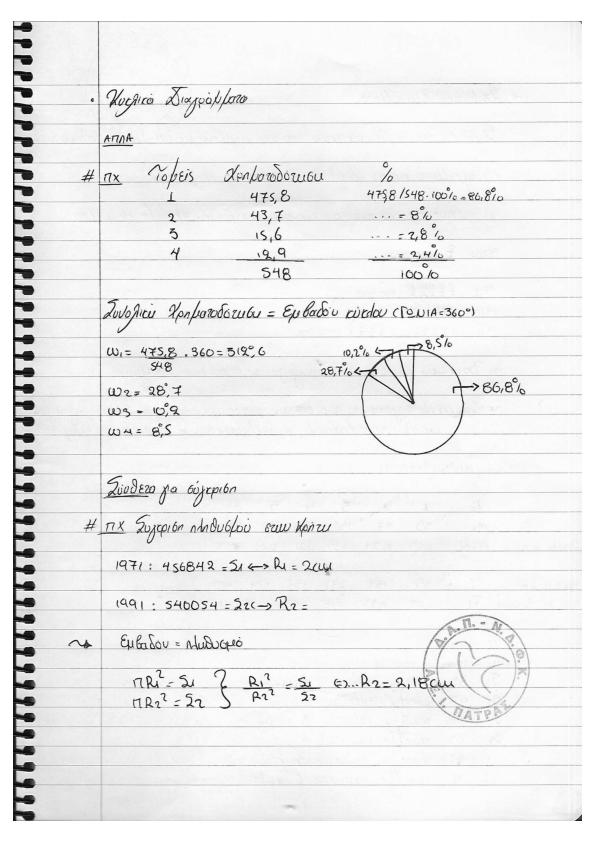 • Κυκλικά Διαγράμματα
ΑΠΛΑ
# πχ Τομείς Χρηματοδότηση %
1 475,8 475,8/548·100% = 86,8%
2 43,7 ... = 8%
3 15,6 ... = 2,8%
4 12,9 ... = 2,4%
548 100%
Συνολική Χρηματοδότηση = Εμβαδόν κύκλου (ΓΩΝΙΑ=360°)
ω1 = 475,8/548 · 360 = 312°,6
10,2% 8,5%
28,7%
86,8%
ω2 = 28°,7
ω3 = 10°,2
ω4 = 8°,5
Σύνθετα για σύγκριση
# πχ Σύγκριση πληθυσμού στην Κρήτη
1971 : 456842 = Σ1 ↔ R1 = 2cm
1991 : 540054 = Σ2 ↔ R2 =
Εμβαδόν = πληθυσμό
πR1² = Σ1 } R1²/R2² = Σ1/Σ2 ⇔ ... R2 = 2,18cm
πR2² = Σ2
Δ.Α.Π. - Ν.Δ.Φ.Κ
Α.Τ.Ε.Ι. ΠΑΤΡΑΣ